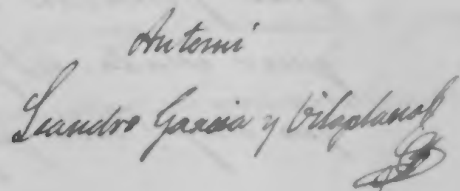 Ante mi
Leandro Garcia y Vilaplana